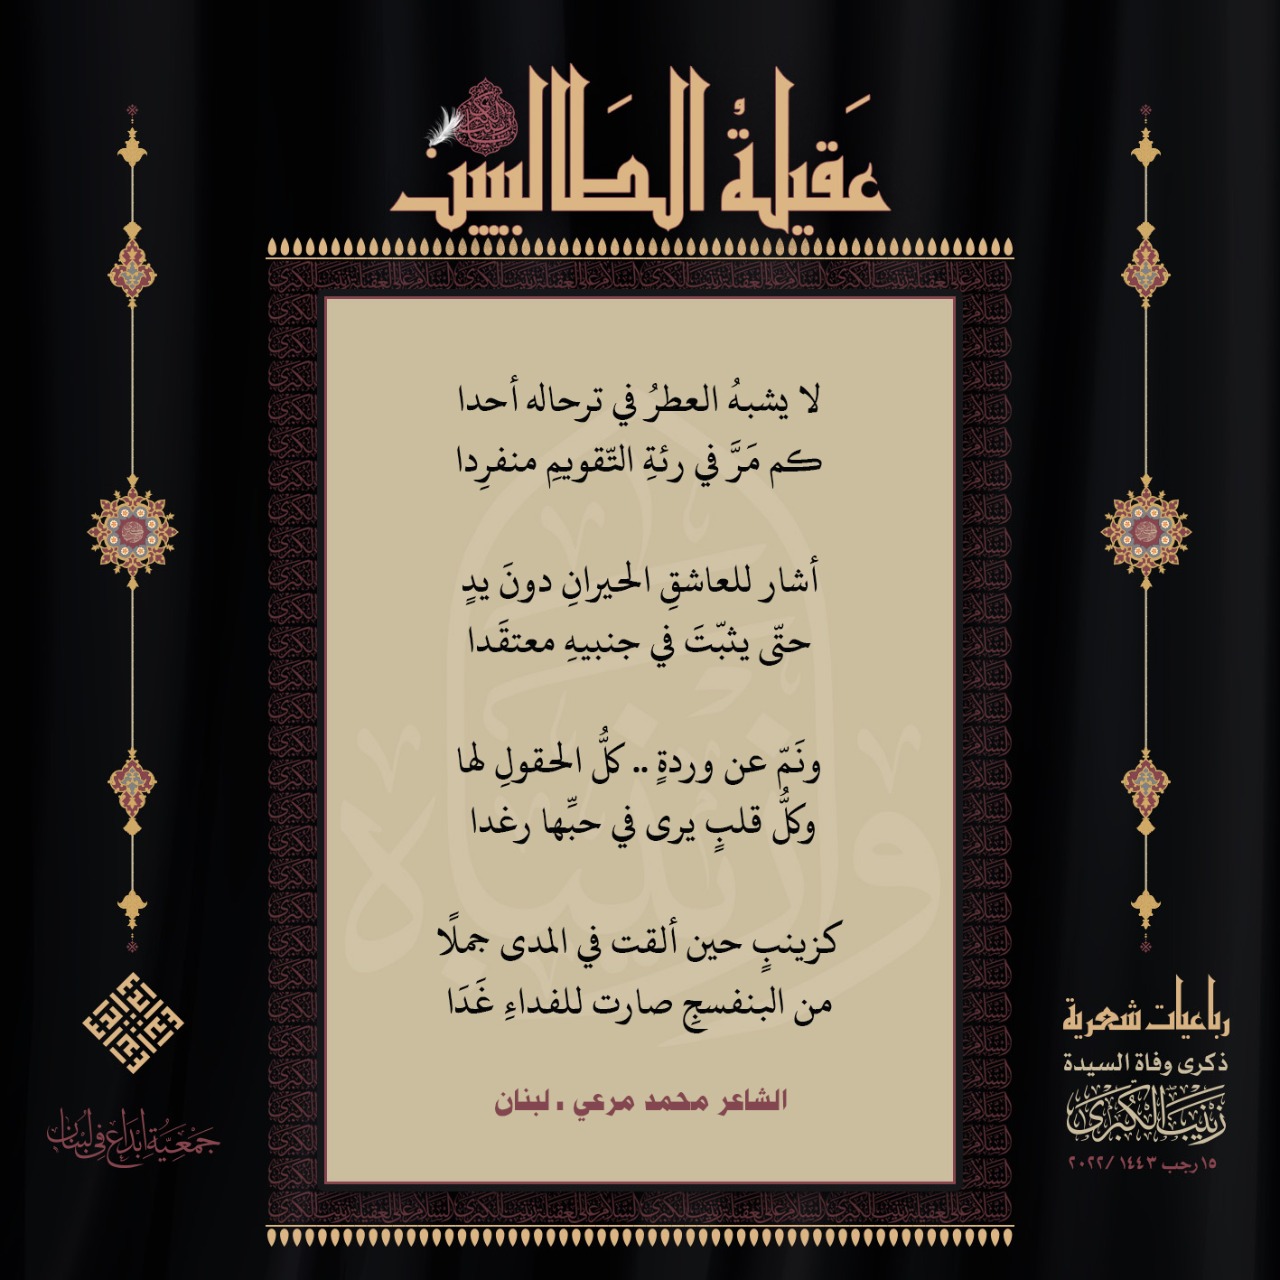 عَقيلةُ الطَالبيين
لا يشبهُ العطرُ في ترحاله أحدا
كم مَرَّ في رئةِ التّقويمِ منفرِدا
أشار للعاشقِ الحيرانِ دونَ يدٍ
حتّى يثبّتَ في جنبيهِ معتقَدا
ونَمّ عن وردةٍ .. كلُّ الحقولِ لها
وكلُّ قلبٍ يرى في حبِّها رغدا
كزينبٍ حين ألقت في المدى جملًا
من البنفسجِ صارت للفداءِ غَدَا
الشاعر محمد مرعي . لبنان
رباعيات شعرية
ذكرى وفاة السيدة
زَيْنَبَ الكُبْرَى
١٥ رجب ١٤٤٣ /٢٠٢٢
جَمْعِيَّةُ إبْدَاع فِي لُبْنَان
وا زينباه